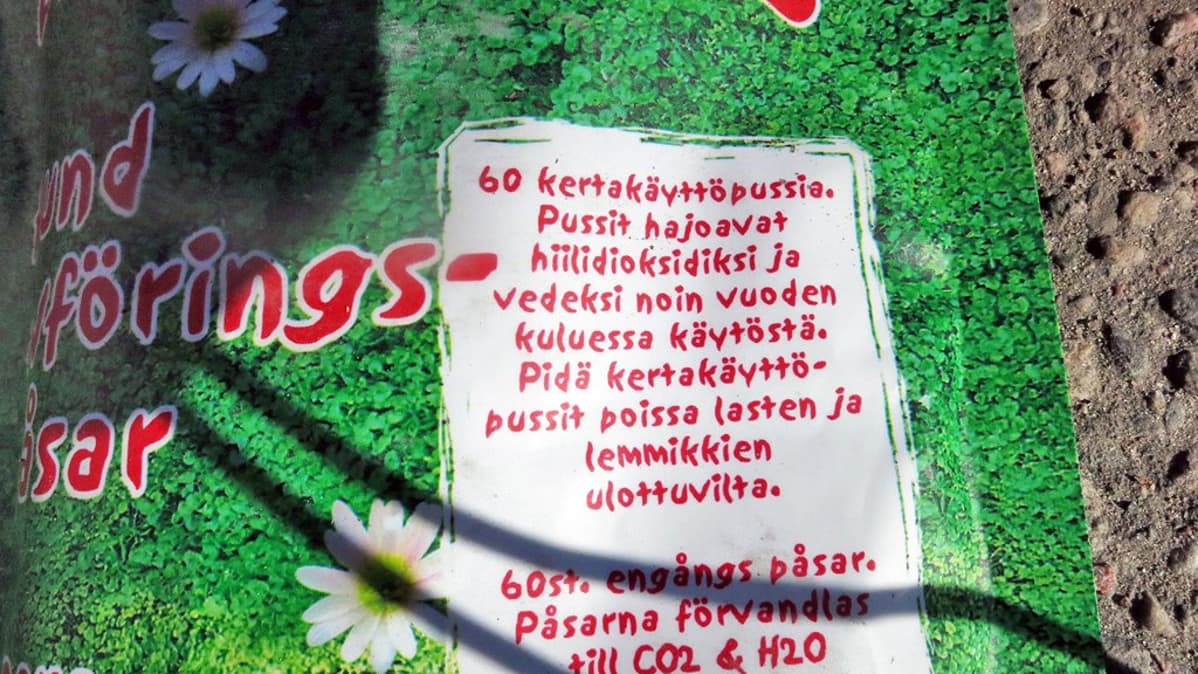 und
förings-
åsar
60 kertakäyttöpussia.
Pussit hajoavat
hiilidioksidiksi ja
vedeksi noin vuoden
kuluessa käytöstä.
Pidä kertakäyttö-
pussit poissa lasten ja
lemmikkien
ulottuvilta.
60st. engångs påsar.
Påsarna förvandlas
till CO2 & H2O